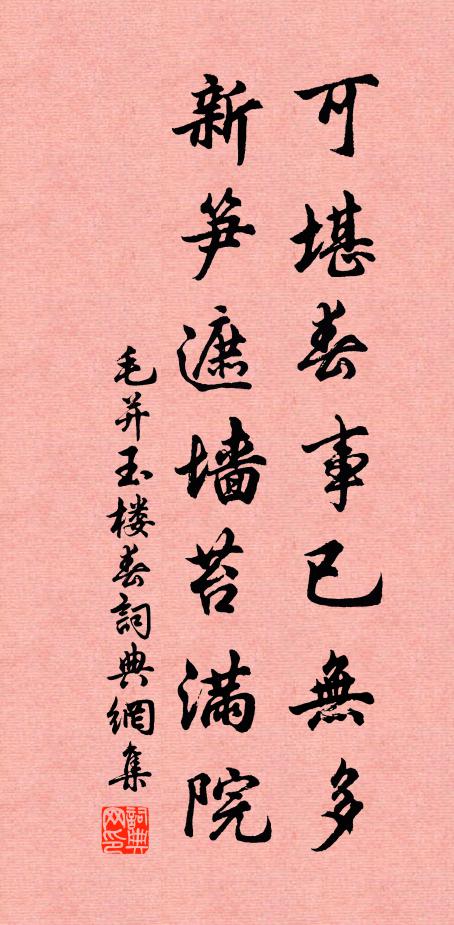 可堪春事已無多
新笋遮墙苔满院
毛并玉楼春詞典網集
詞典网印